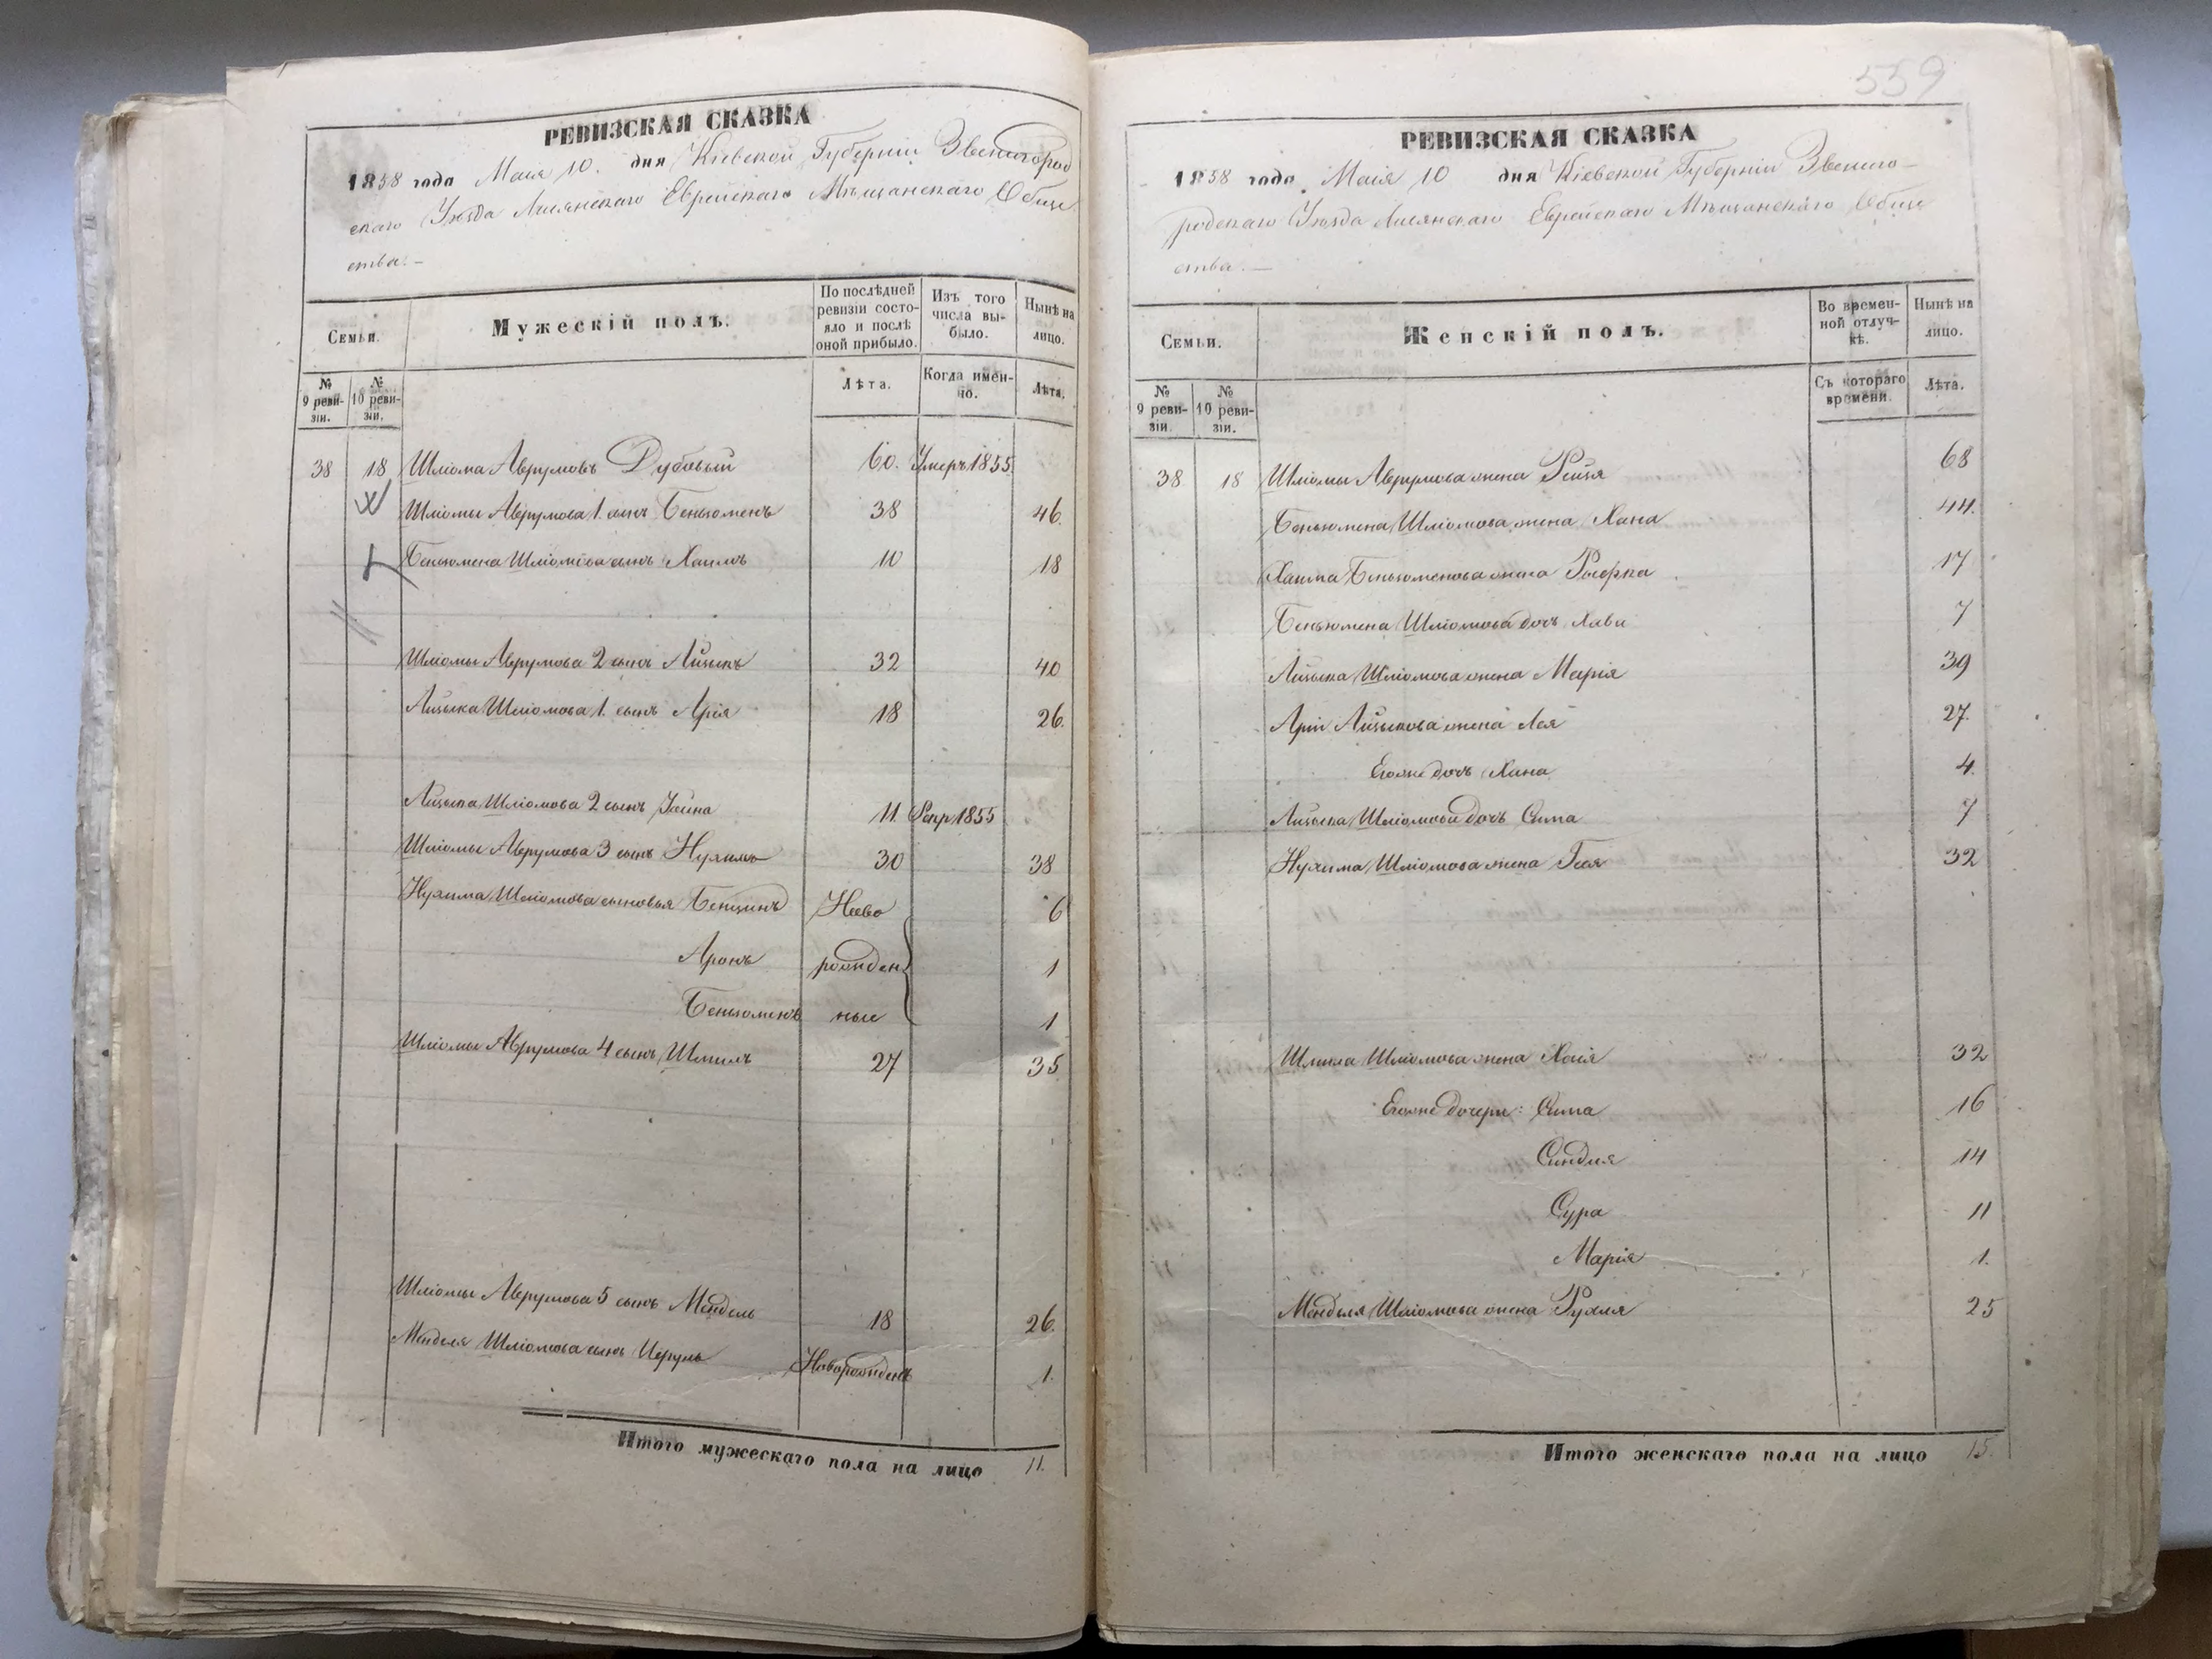 РЕВИЗСКАЯ СКАЗКА
1858 года Маия 10. дня Кіевской Губерніи Звенигород
скаго Уѣзда Лисянскаго Еврейскаго Мѣщанскаго Обще
ства. –
Семьи.
Мужескій полъ.
По послѣдней ревизіи состояло и послѣ оной прибыло.
Изъ того числа выбыло.
Нынѣ на лицо.
№ 9 ревизіи.
№ 10 ревизіи.
Лѣта.
Когда именно.
Лѣта.
38 18 Шліома Аврумовъ Дубовый 60. Умеръ 1855
Шліомы Аврумова 1. сынъ Беньюменъ 38 46.
Беньюмена Шліомова сынъ Хаимъ 10 18
Шліомы Аврумова 2 сынъ Айзыкъ 32 40
Айзыка Шліомова 1. сынъ Арія 18 26.
Айзыка Шліомова 2 сынъ 11. 1855
Шліомы Аврумова 3 сынъ Нухимъ 30 38
Нухима Шліомова сыновья Бенционъ Ново 6
Аронъ рожден 1
Беньюменъ ные 1
Шліомы Аврумова 4 сынъ Шмиль 27 35
Шліомы Аврумова 5 сынъ Мендель 18 26.
Менделя Шліомова сынъ Новорожденъ 1.
Итого мужескаго пола на лицо 11.
559
РЕВИЗСКАЯ СКАЗКА
1858 года Маія 10 дня Кіевской Губерніи Звениго–
родскаго Уѣзда Лисянскаго Еврейскаго Мѣщанскаго Обще
ства. —
Семьи.
Женскій полъ.
Во временной отлучкѣ.
Нынѣ на лицо.
№ 9 ревизіи.
№ 10 ревизіи.
Съ котораго времени.
Лѣта.
38 18 Шліомы Аврумова жена Рейзя 68
Беньюмена Шліомова жена Хана 44.
Хаима Беньюменова жена Рыфка 17
Беньюмена Шліомова дочь Хава 7
Айзыка Шліомова жена Марія 39
Аріи Айзыкова жена Лея 27.
Егоже дочь Хана 4.
Айзыка Шліомова дочь Сима 7
Нухима Шліомова жена Гея 32
Шмиля Шліомова жена Хаія 32
Егоже дочери: Сима 16
Синдля 14
Сура 11
Марія 1.
Менделя Шліомова жена Рухля 25
Итого женскаго пола на лицо 15.